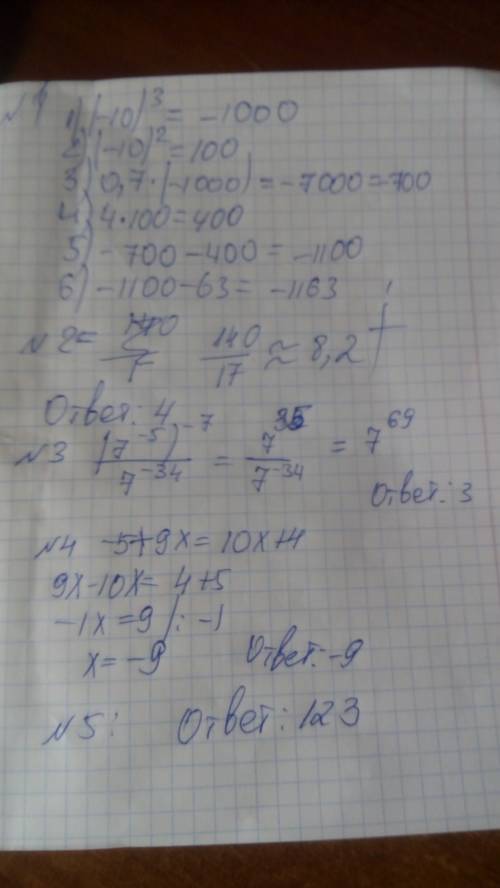 №1 1) (-10)^3 = -1000
2) (-10)^2 = 100
3) 0,7·(-1000) = -7000 = -700
4) 4·100 = 400
5) -700 - 400 = -1100
6) -1100 - 63 = -1163
№2 = 140/17 ≈ 8,2
Ответ: 4
№3 (7^-5)^-7 / 7^-34 = 7^35 / 7^-34 = 7^69
Ответ: 3
№4 -5+9x = 10x+4
9x-10x = 4+5
-1x = 9 /: -1
x = -9 Ответ: -9
№5: Ответ: 123